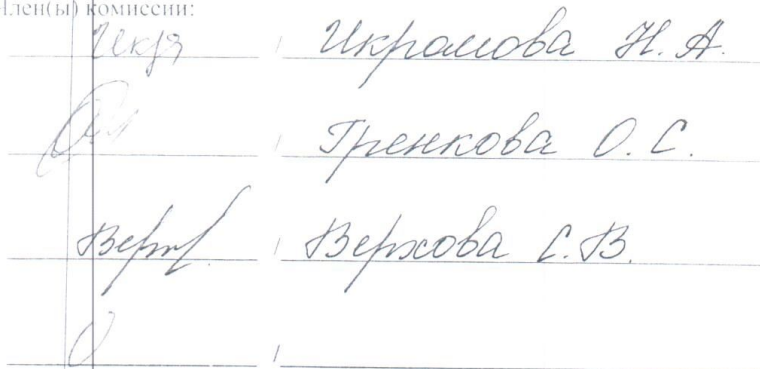 Член(ы) комиссии:
/ Икрамова Н. А.
/ Гренкова О. С.
/ Верхова С. В.
/